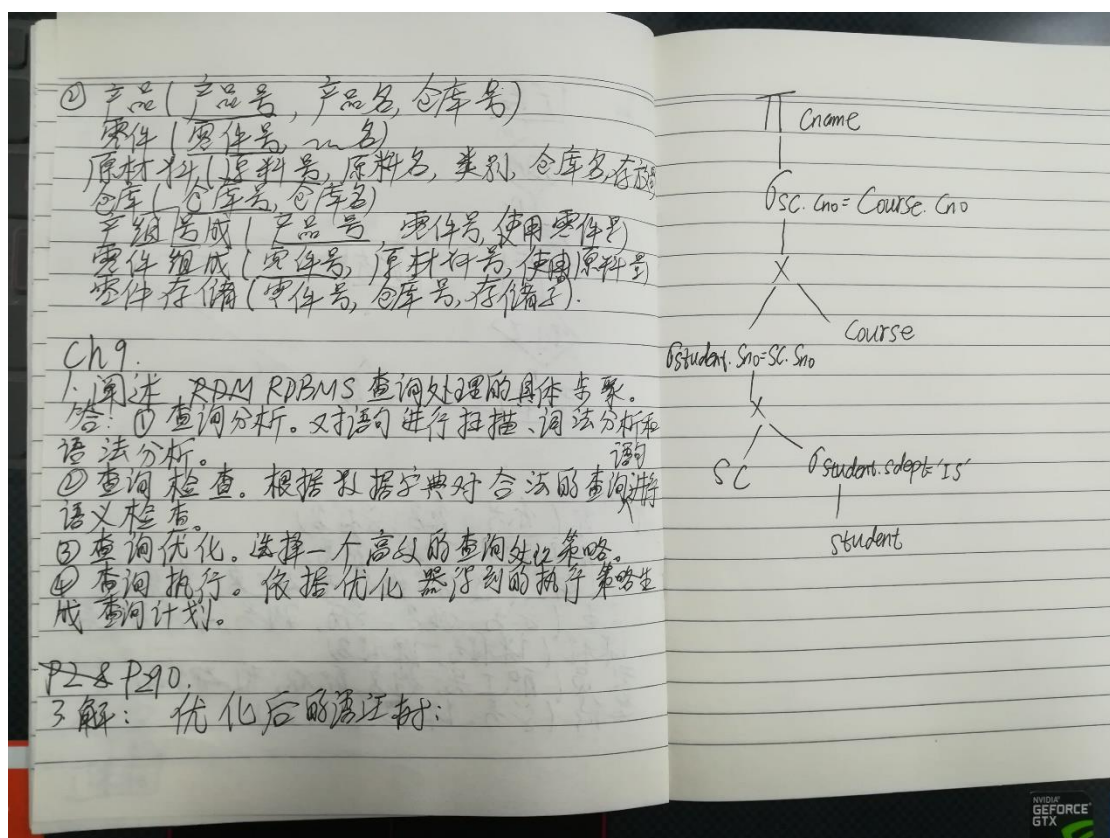 ② 产品(产品号, 产品名, 仓库号)
零件(零件号, ~~名)
原材料(原料号, 原料名, 类别, 仓库名, 存放量)
仓库(仓库号, 仓库名)
产组号成(产品号, 零件号, 使用零件量)
零件组成(零件号, 原材料号, 使用原料量)
零件存储(零件号, 仓库号, 存储量).
Ch9.
1. 阐述 RDBMS 查询处理的具体步聚。
答: ① 查询分析。对语句进行扫描、词法分析和
语法分析。
② 查询检查。根据数据字典对合法的查询语句进行
语义检查。
③ 查询优化。选择一个高效的查询处理策略。
④ 查询执行。依据优化器得到的执行策略生
成查询计划。
P290.
3 解: 优化后的语法树:
Π Cname
σSC.Cno=Course.Cno
×
Course
σStudent.Sno=SC.Sno
×
SC
σStudent.Sdept='IS'
Student
NVIDIA
GEFORCE
GTX